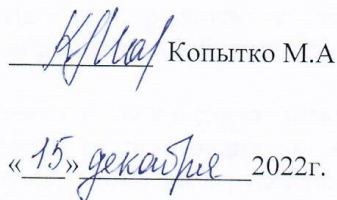 Копытко М.А
«15» декабря 2022г.